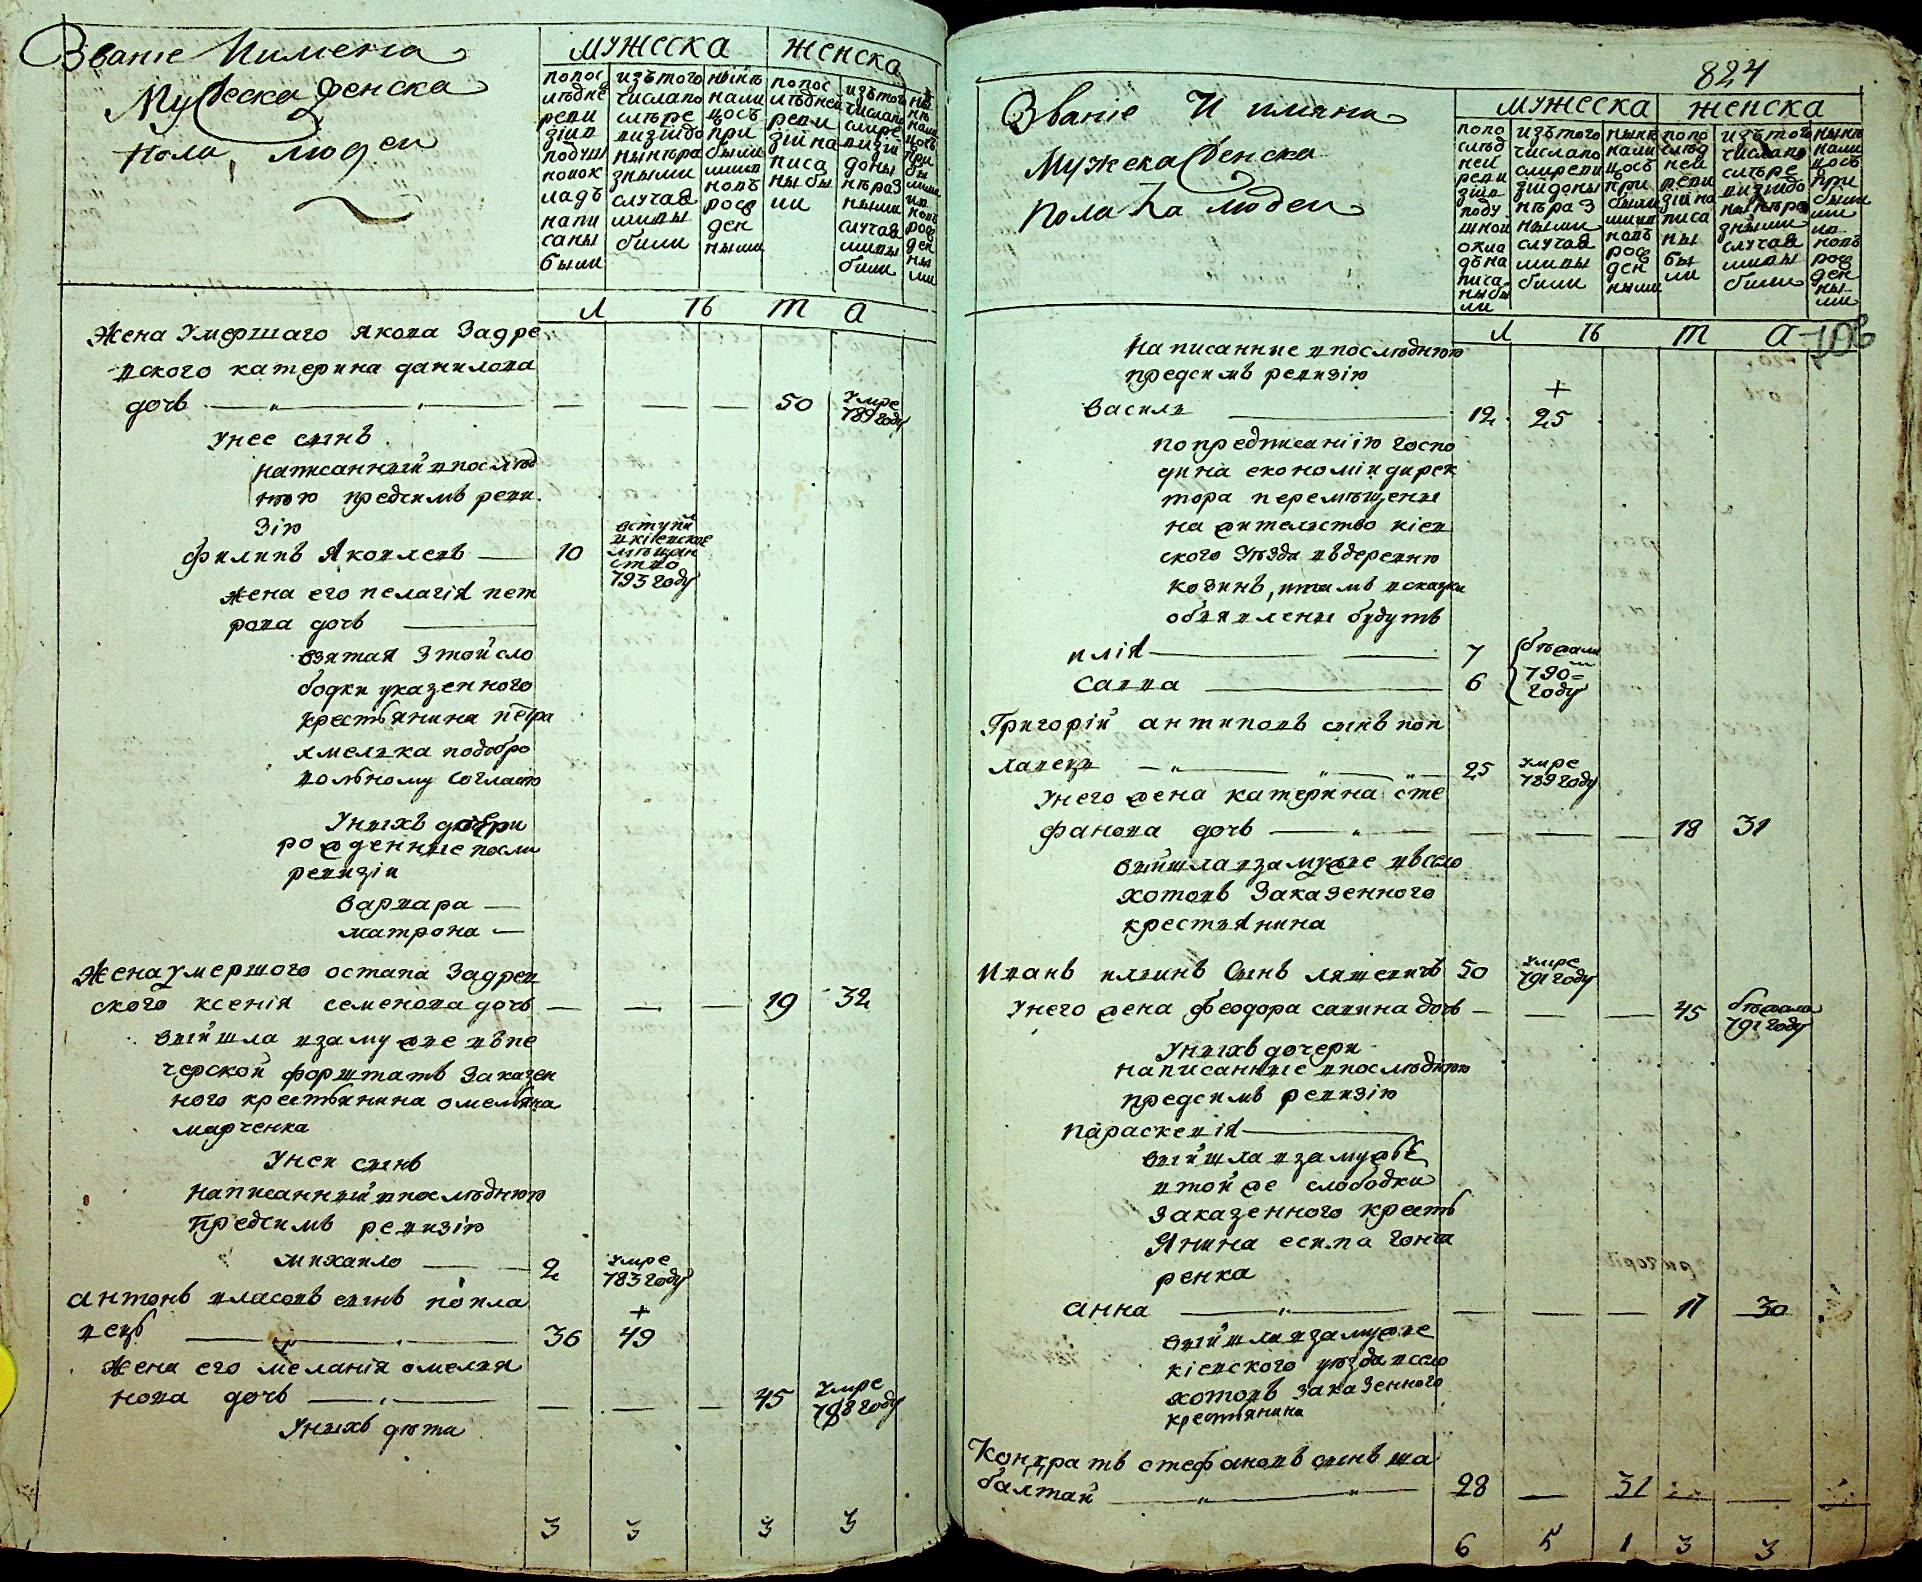 Званіе Имена
Мужеска женска
пола людеи
мужеска
женска
попос
лѣдне
реви
зіив
подуш
номок
ладъ
напи
саны
были
изътого
числапо
слѣре
визіидо
нынѣра
зными
случая
мивы
били
нынѣ
нали
цосъ
при
были
мины
новъ
рож
ден
ными
попос
лѣдней
реви
зіина
писа
ны бы
ли
изътого
числапо
слѣре
визіи
доны
нѣраз
ными
случая
мивы
били
л ѣ т а
Жена умершаго якова Задре
вского катерина данилова
дочь 50 умре 789 году
унее сынъ
написанный впослѣд
нюю предсимъ реви
зію
филипъ Яковлевъ 10 вступи вкіевское мѣщан ство 793 году
жена его пелагія пет
рова дочь
взятая зтойсло
бодки указенного
крестьянина петра
ямелька подобро
вольному согласію
унихъ дочери
рожденные посли
ревизіи
варвара
матрона
Жена умершого остапа Задрев
ского ксенія семенова дочь 19 32
вийшла взамужже въпе
черской форштатъ Заказен
ного крестьянина омельяна
марченка
унеи сынъ
написанный впослѣднюю
предсимъ ревизію
михаило 2 умре 783 году
антонъ власовъ синъ попла
вецъ 36 + 49
жена его меланія омелья
нова дочь 45 умре 798 году
унихъ дѣта
3 3 3 3
824
Званіе И имяна
Мужска женска
пола ка людеи
мужеска
женска
попо
слѣд
ней
реви
зіив
поду
шной
окла
дъна
писа
ныбы
ли
изътого
числапо
слиреви
зіидоны
нѣраз
ными
случая
мивы
били
нынѣ
нали
цосъ
при
были
мины
новъ
рож
ден
ными
попо
слѣд
ней
реви
зіина
писа
ны
бы
ли
изътого
числапо
слѣре
визіидо
нынѣра
зными
случая
мивы
били
нынѣ
нали
цосъ
при
были
ми
ив
новъ
рож
ден
ны
ми
л ѣ т а
написанные впослѣднюю
предсимъ ревизію
василь 12 + 25
по предписанію госпо
дина економіидирек
тора перемѣщены
на жителство кіев
ского уѣзда въдеревню
козинъ, итамъ всказки
объявлены будутъ
илія 7 бѣжали
савва 6 790 году
Григорій антиповъ сынъ поп
лавецъ 25 умре 789 году
унего жена катерина сте
фанова дочь 18 31
вийшла взамужже въсело
хотовъ Заказенного
крестьянина
Иванъ илинъ Сынъ ляшевичъ 50 умре 791 году
унего жена феодора савина дочь 45 бѣжала 791 году
унихъ дочери
написанные впослѣднюю
предсимъ ревизію
параскевія
вийшла взамужже
втой же слободки
Заказенного кресть
Янина есипа гонча
ренка
анна 17 30
вийшла взамужже
кіевского уѣзда всело
хотовъ Заказенного
крестьянина
Кондратъ стефановъ синъ ша
балтай 28 31
6 5 1 3 3